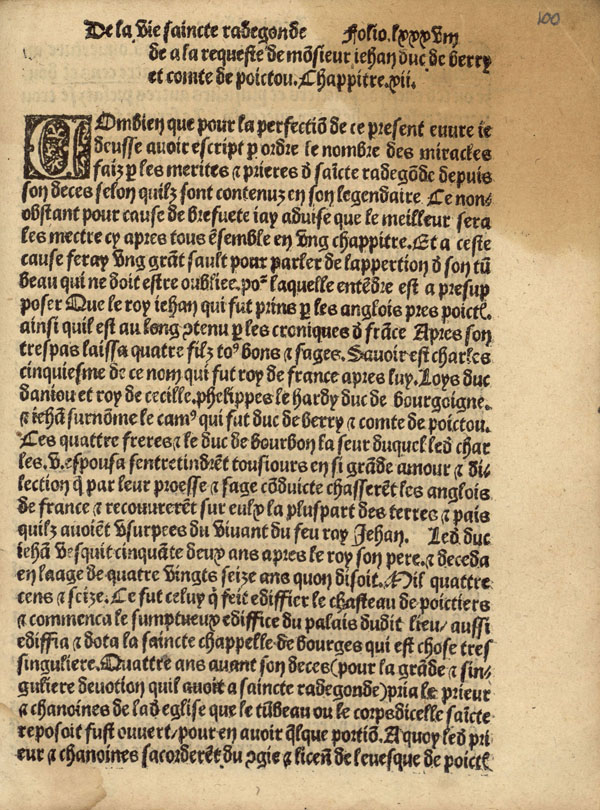 100
De la vie saincte radegonde Folio.lxxxviii
de a la requeste de mõsieur iehan duc de berry
et comte de poictou. Chappitre.xii.
COmbien que pour la perfectiõ de ce present euure ie
deusse auoir escript p ordre le nombre des miracles
faiz p les merites & prieres d saĩcte radegõde depuis
son deces selon quilz sont contenuz en son legendaire Ce non-
obstant pour cause de brefuete iay aduise que le meilleur sera
les mectre cy apres tous ẽsemble en vng chappitre. Et a ceste
cause feray vng grãt sault pour parler de lappertion d son tũ
beau qui ne doit estre oubliee. po² laquelle entẽdre est a presup
poser Que le roy iehan qui fut prins p les anglois pres poictl.
ainsi quil est au long ꝯtenu p les croniques d frãce Apres son
trespas laissa quatre filz to⁹ bons & sages. Sauoir est charles
cinquiesme de ce nom qui fut roy de france apres luy. Loys duc
daniou et roy de cecille. phelippes le hardy duc de bourgoigne.
& iehã surnõme le cam⁹ qui fut duc de berry & comte de poictou.
Ces quattre freres & le duc de bourbon la seur duquel led char
les. v. espousa sentretindrẽt tousiours en si grãde amour & di-
lection q̃ par leur proesse & sage cõduicte chasserẽt les anglois
de france & recouurerẽt sur eulx la pluspart des terres & pais
quilz auoiẽt vsurpees du viuant du feu roy Jehan. Led duc
iehã vesquit cinquãte deux ans apres le roy son pere. & deceda
en laage de quatre vingts seize ans quon disoit. Mil quattre
cens & seize. Ce fut celuy q̃ feit ediffier le chasteau de poictiers
& commenca le sumptueux ediffice du palais dudit lieu/ aussi
ediffia & dota la saincte chappelle de bourges qui est chose tres
singuliere. Quattre ans auant son deces (pour la grãde & sin-
guliere deuotion quil auoit a saincte radegonde) pria le prieur
& chanoines de lad eglise que le tũbeau ou le corps dicelle saĩcte
reposoit fust ouuert/ pour en auoir q̃lque portiõ. A quoy led pri
eur & chanoines sacorderẽt du ꝯgie & licẽn de leuesque de poictl